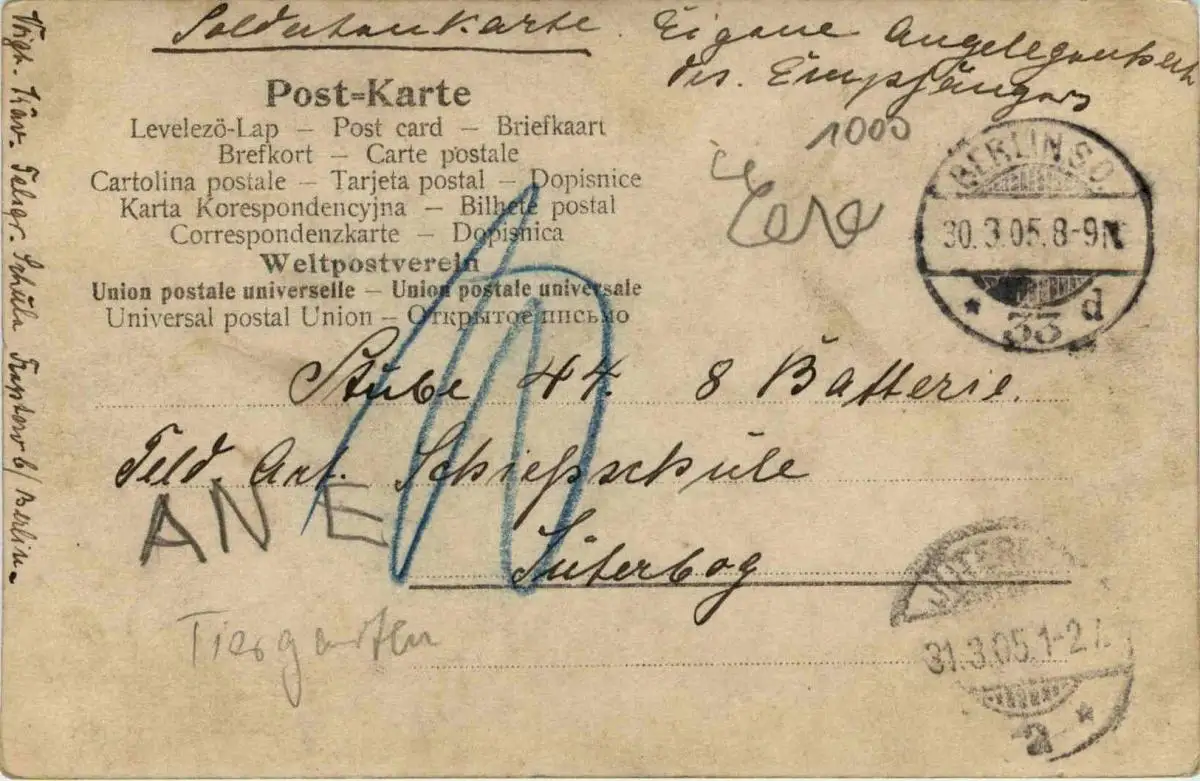 Soldatenkarte. Eigene Angelegenheit
des. Empfängers
Post-Karte
Levelező-Lap – Post card – Briefkaart
Brefkort – Carte postale
Cartolina postale – Tarjeta postal – Dopisnice
Karta Korespondencyjna – Bilhete postal
Correspondenzkarte – Dopisnica
Weltpostverein
Union postale universelle – Union postale universale
Universal postal Union – Открытое письмо
1000
BERLIN S.O.
30.3.05.8-9N
33 d
Stube 44. 8 Batterie.
Feld. Art. Schießschule
Jüterbog
ANE
Tiergarten
JÜTERBOG
31.3.05.1-2
a
Kav. Telegr. Schule Treptow b/Berlin.